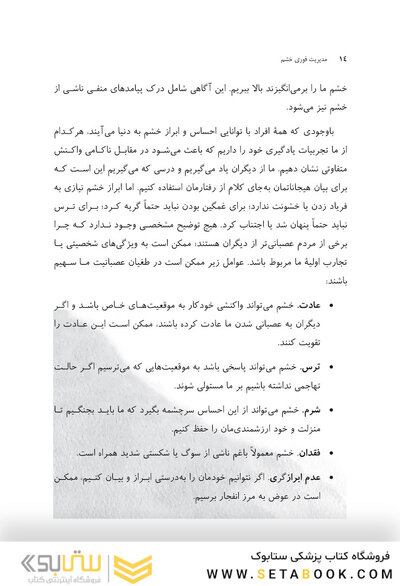 ۱۴ مدیریت فوری خشم
خشم ما را برمی‌انگیزند بالا ببریم. این آگاهی شامل درک پیامدهای منفی ناشی از
خشم نیز می‌شود.
باوجودی که همهٔ افراد با توانایی احساس و ابراز خشم به دنیا می‌آیند، هرکدام
از ما تجربیات یادگیری خود را داریم که باعث می‌شود در مقابل ناکامی واکنش
متفاوتی نشان دهیم. ما از دیگران یاد می‌گیریم و درسی که می‌گیریم این است که
برای بیان هیجاناتمان به‌جای کلام از رفتارمان استفاده کنیم. اما ابراز خشم نیازی به
فریاد زدن یا خشونت ندارد؛ برای غمگین بودن نباید حتماً گریه کرد؛ برای ترس
نباید حتماً پنهان شد یا اجتناب کرد. هیچ توضیح مشخصی وجود ندارد که چرا
برخی از مردم عصبانی‌تر از دیگران هستند؛ ممکن است به ویژگی‌های شخصیتی یا
تجارب اولیهٔ ما مربوط باشد. عوامل زیر ممکن است در طغیان عصبانیت ما سهیم
باشند:
• عادت. خشم می‌تواند واکنشی خودکار به موقعیت‌های خاص باشد و اگر
دیگران به عصبانی شدن ما عادت کرده باشند، ممکن است این عادت را
تقویت کنند.
• ترس. خشم می‌تواند پاسخی باشد به موقعیت‌هایی که می‌ترسیم اگر حالت
تهاجمی نداشته باشیم بر ما مستولی شوند.
• شرم. خشم می‌تواند از این احساس سرچشمه بگیرد که ما باید بجنگیم تا
منزلت و خود ارزشمندی‌مان را حفظ کنیم.
• فقدان. خشم معمولاً باغم ناشی از سوگ یا شکستی شدید همراه است.
• عدم ابرازگری. اگر نتوانیم خودمان را به‌درستی ابراز و بیان کنیم، ممکن
است در عوض به مرز انفجار برسیم.
فروشگاه کتاب پزشکی ستابوک
WWW.SETABOOK.COM
ستابوک
فروشگاه اینترنتی کتاب